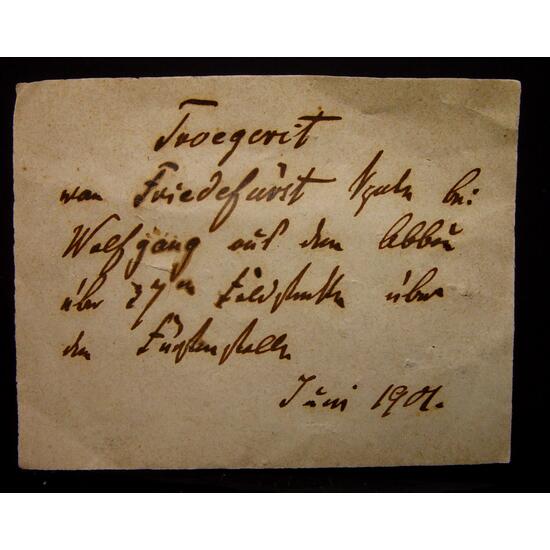 Troegerit
von Friedefürst Spat bei
Wolfgang auf dem Abbau
über 27 m Feldstrecke über
der Fürstenstolln
Juni 1901.